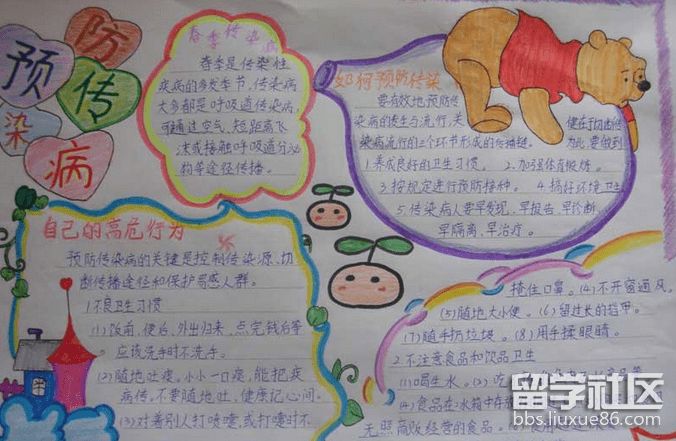 预
防
传
染
病
春季传染病
春季是传染性
疾病的多发季节，传染病
大多都是呼吸道传染病，
可通过空气、短距离飞
沫或接触呼吸道分泌
物等途径传播。
如何预防传染
要有效地预防传
染病的发生与流行，关
染病流行的三个环节形成的传播链。
为此，要做到
1.养成良好的卫生习惯。 2.加强体育锻炼。
3.按规定进行预防接种。 4.搞好环境卫生
5.传染病人要早发现、早报告、早诊断、
早隔离、早治疗。
自己的高危行为
预防传染病的关键是控制传染源、切
断传播途径和保护易感人群。
1.不良卫生习惯
(1)饭前、便后、外出归来、点完钱后等
应该洗手时不洗手。
(2)随地吐痰。小小一口痰，能把疾
病传，不要随地吐，健康记心间。
(3)对着别人打喷嚏，或打嚏时不
捂住口鼻。(4)不开窗通风。
(5)随地大小便。(6)留过长的指甲。
(7)随手扔垃圾。(8)用手揉眼睛。
2.不注意食品和饮品卫生
(1)喝生水。(2)吃
(4)食品在冰箱中存
无照商贩经营的食品。
留学社区
bbs.liuxue86.com